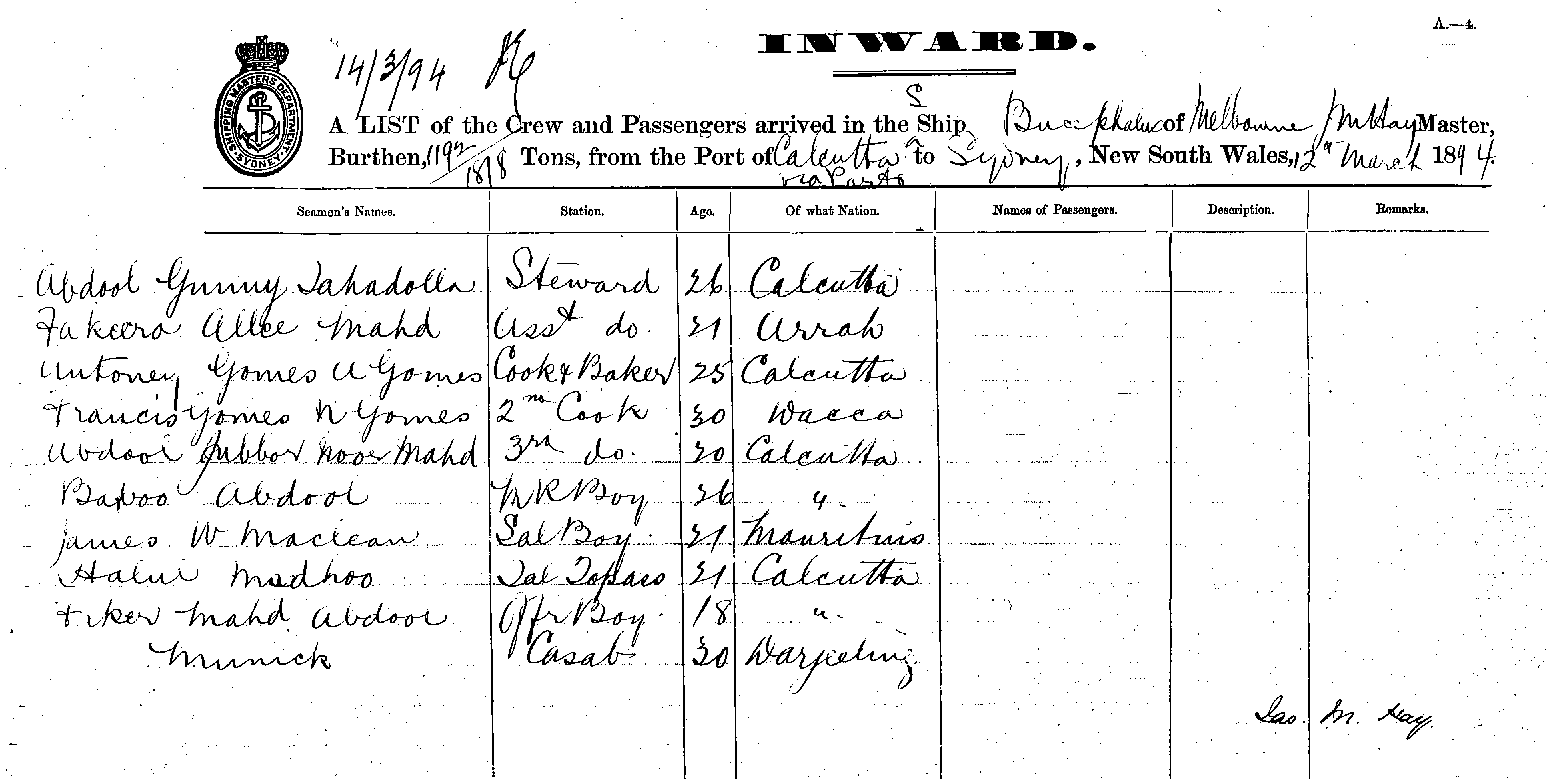 A.—4.
INWARD.
14/3/94
SHIPPING MASTERS DEPARTMENT SYDNEY
S
A LIST of the Crew and Passengers arrived in the Ship Bucephalus of Melbourne Jm Hay Master,
Burthen, 1192/1818 Tons, from the Port of Calcutta to Sydney, New South Wales, 12th March 1894.
via Ports
Seamen's Names. Station. Age. Of what Nation. Names of Passengers. Description. Remarks.
Abdool Gunny Sahadolla Steward 26 Calcutta
Fakeera Allee Mahd Asst do. 21 Arrah
Antoney Gomes A Gomes Cook & Baker 25 Calcutta
Francis Gomes N Gomes 2nd Cook 30 Dacca
Abdool Jubbor Noor Mahd 3rd do. 20 Calcutta
Baboo Abdool M R Boy 26 "
James W Maclean Sal Boy 21 Mauritius
Madhoo Sal Topass 21 Calcutta
Mahd Abdool Offr Boy 18 "
Munick Casab 30 Darjeeling
Jas. M. Hay.